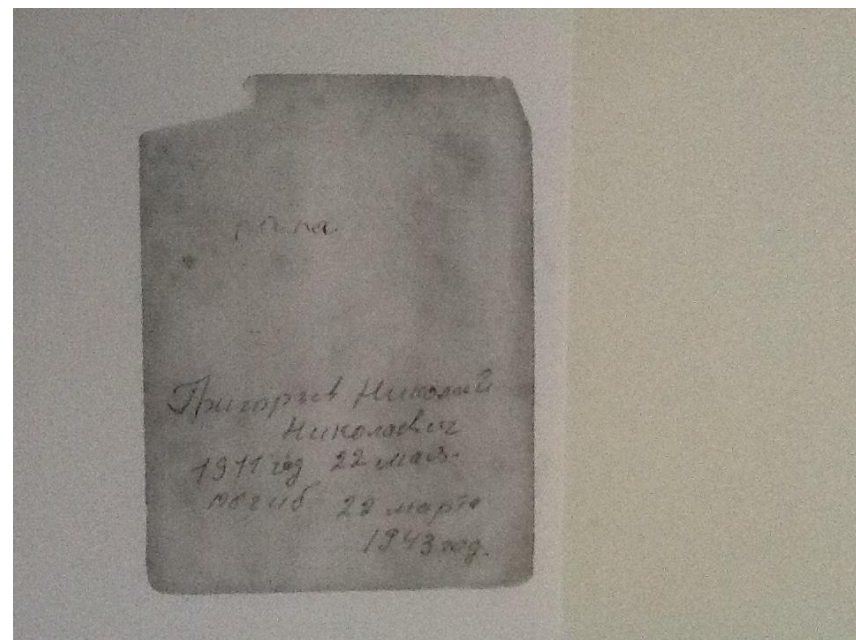 папа
Григорьев Николай
Николаевич
1911 год 22 мая.
погиб 22 марта
1943 год.